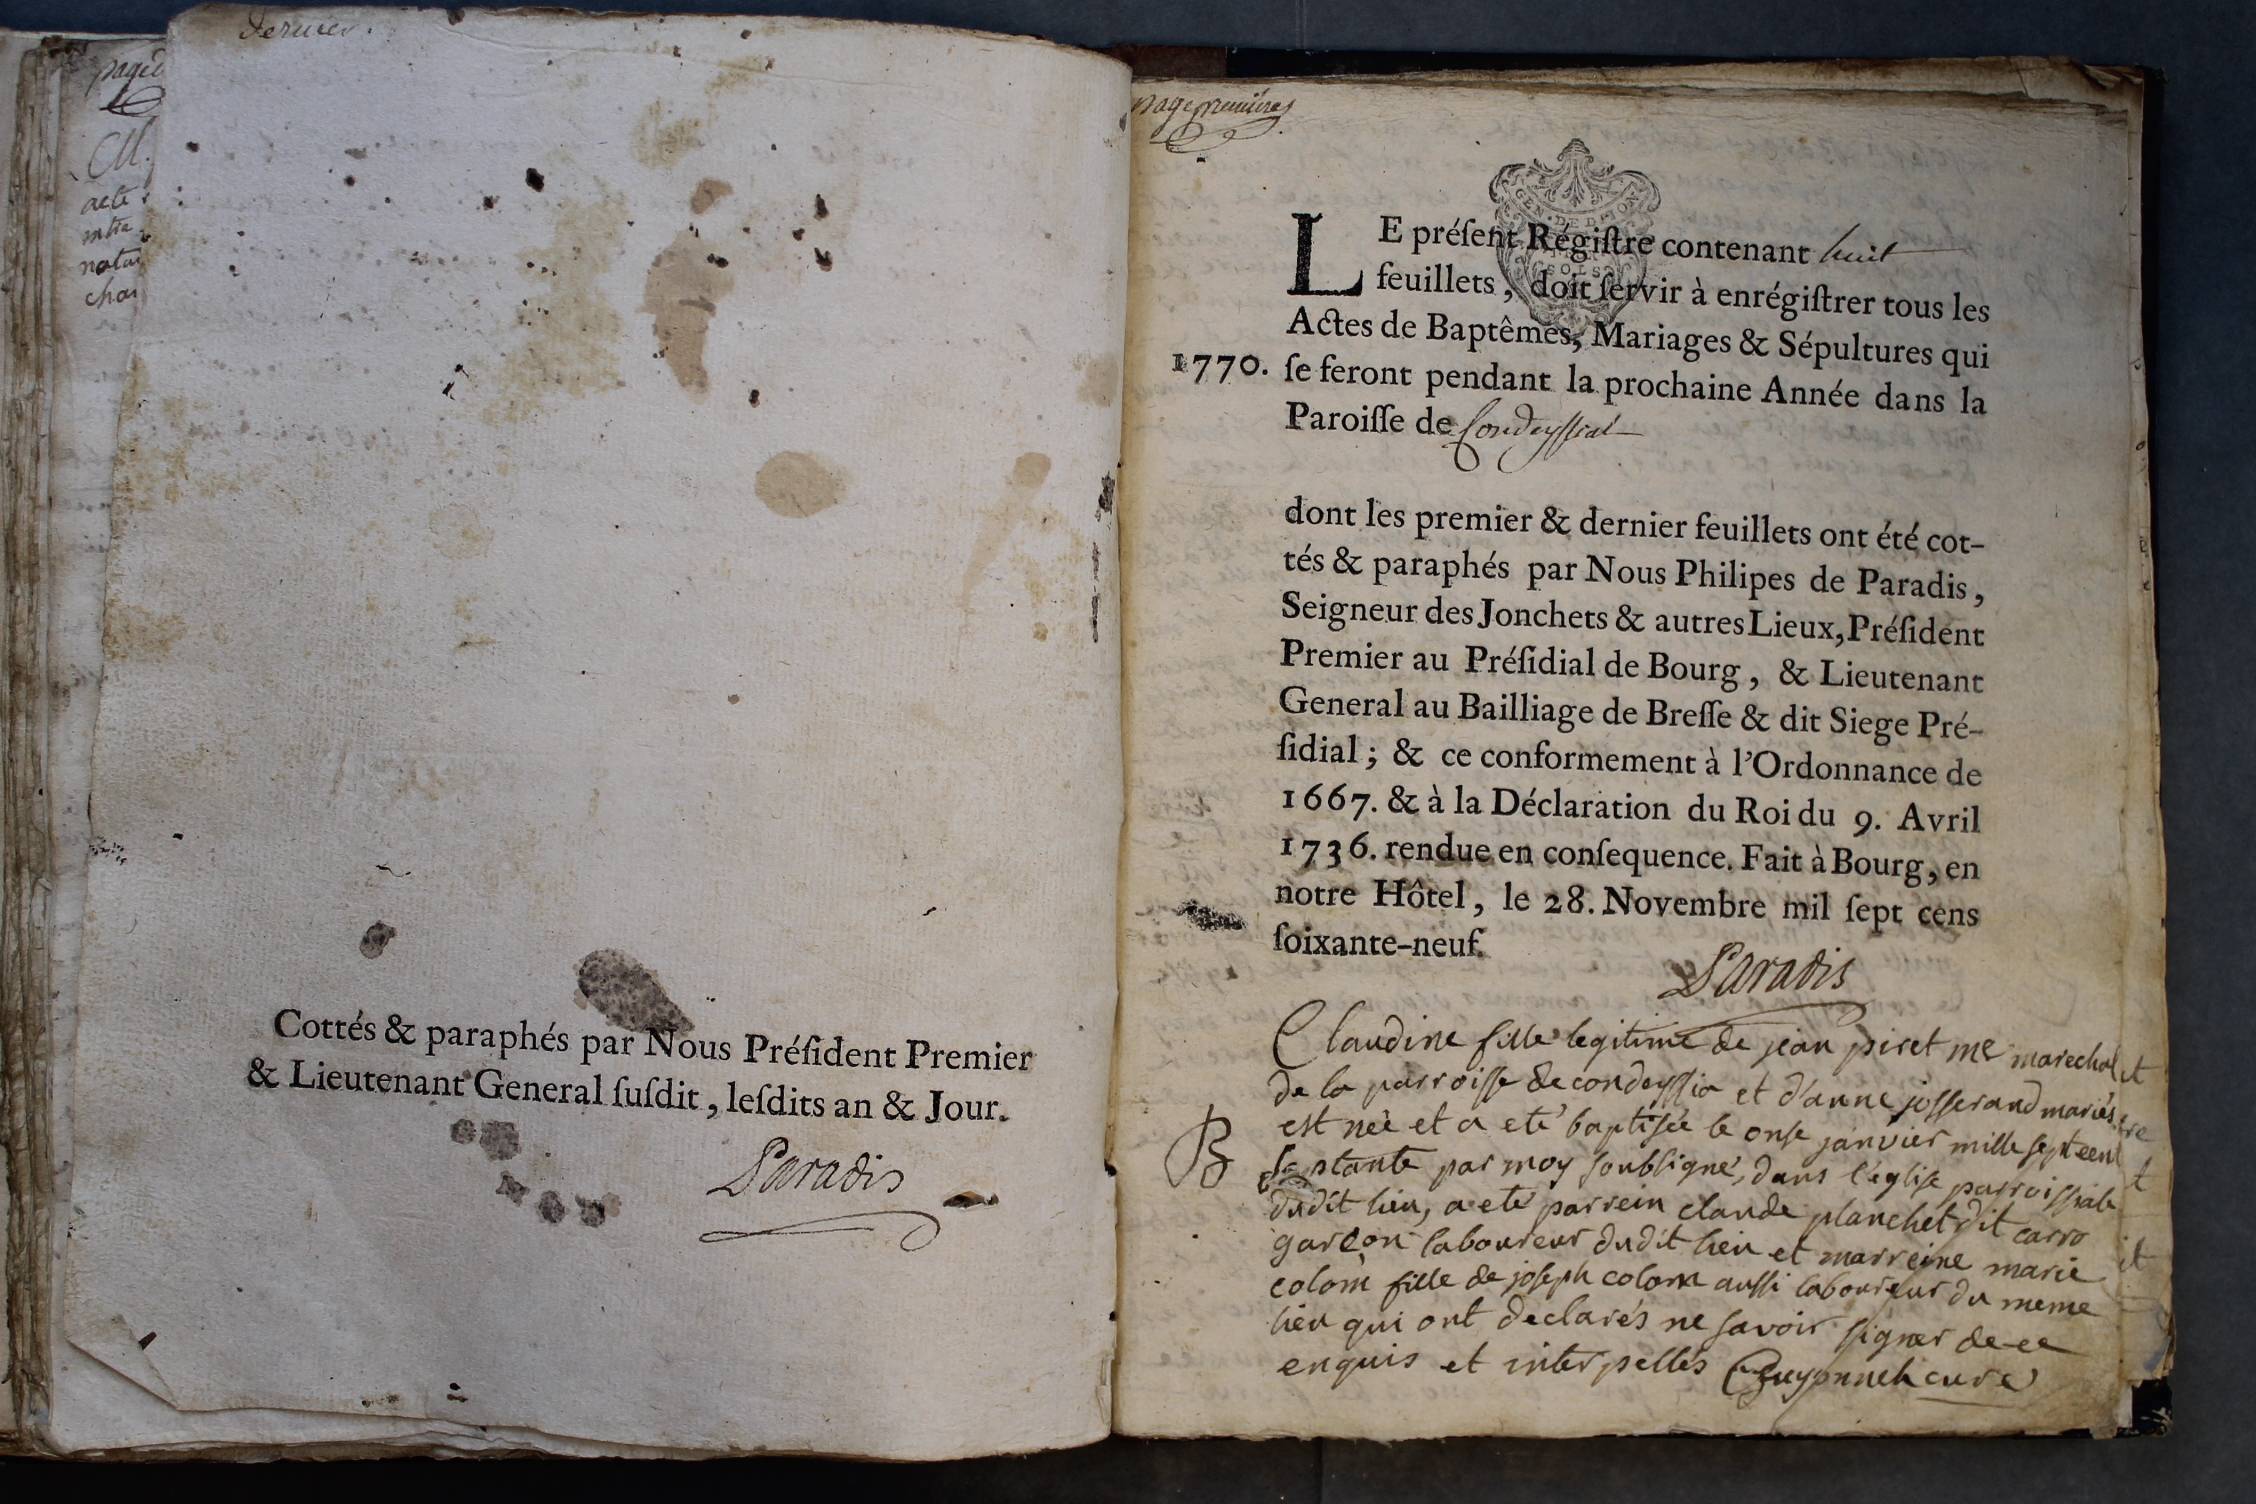 dernier.
page d
M.
acte
mtre
notai
char
Cottés & paraphés par Nous Préſident Premier
& Lieutenant General ſuſdit, leſdits an & Jour.
Paradis
page premiere
GEN · DE DIJON
SOLS
LE préſent Régiſtre contenant huit
feuillets, doit ſervir à enrégiſtrer tous les
Actes de Baptêmes, Mariages & Sépultures qui
1770. ſe feront pendant la prochaine Année dans la
Paroiſſe de Condeyssiat
dont les premier & dernier feuillets ont été cot-
tés & paraphés par Nous Philipes de Paradis,
Seigneur des Jonchets & autres Lieux, Préſident
Premier au Préſidial de Bourg, & Lieutenant
General au Bailliage de Breſſe & dit Siege Pré-
ſidial; & ce conformement à l'Ordonnance de
1667. & à la Déclaration du Roi du 9. Avril
1736. rendue en conſequence. Fait à Bourg, en
notre Hôtel, le 28. Novembre mil ſept cens
ſoixante-neuf.
Paradis
Claudine fille legitime de jean piret me marechal
de la parroisse de condeyssia et d'anne josserand mariés
est neè et a eté baptisée le onse janvier mille sept cent
B septante par moy soubsigné, dans l'église parroissiale
dudit lieu, a eté parrein claude planchet dit carro
garcon laboureur dudit lieu et marreine marie
colom fille de joseph colom aussi laboureur du meme
lieu qui ont declarés ne savoir signer de ce
enquis et interpellés Guyonneh curé